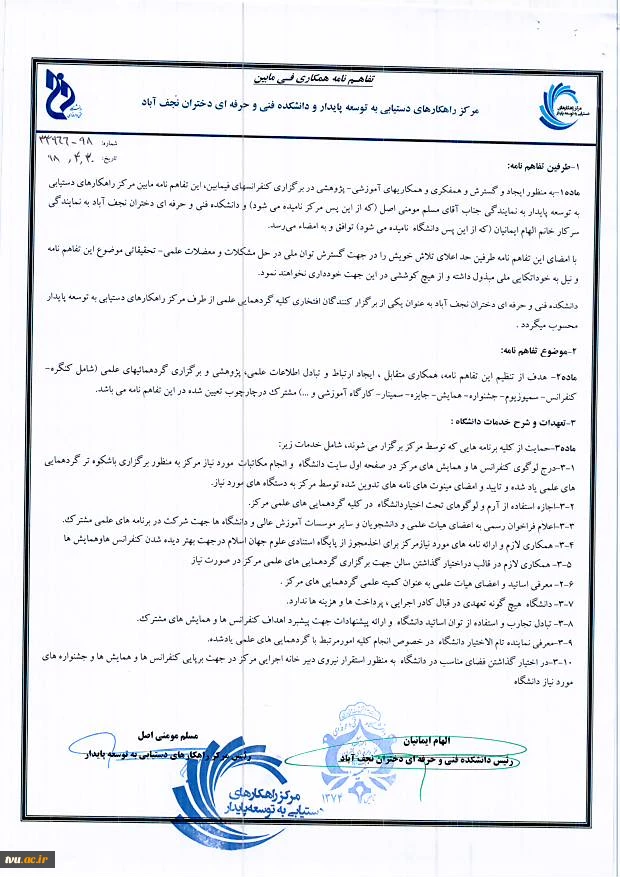 تفاهم نامه همکاری فی مابین
مرکز راهکارهای دستیابی به توسعه پایدار و دانشکده فنی و حرفه ای دختران نجف آباد
مرکز راهکارهای
دستیابی به توسعه پایدار
شماره:
تاریخ: ۹۸,۴,۳۰
۱-طرفین تفاهم نامه:
ماده۱-به منظور ایجاد و گسترش و همفکری و همکاریهای آموزشی- پژوهشی در برگزاری کنفرانسهای فیمابین، این تفاهم نامه مابین مرکز راهکارهای دستیابی
به توسعه پایدار به نمایندگی جناب آقای مسلم مومنی اصل (که از این پس مرکز نامیده می شود) و دانشکده فنی و حرفه ای دختران نجف آباد به نمایندگی
سرکار خانم الهام ایمانیان (که از این پس دانشگاه نامیده می شود) توافق و به امضاء می‌رسد.
با امضای این تفاهم نامه طرفین حد اعلای تلاش خویش را در جهت گسترش توان ملی در حل مشکلات و معضلات علمی- تحقیقاتی موضوع این تفاهم نامه
و نیل به خوداتکایی ملی مبذول داشته و از هیچ کوششی در این جهت خودداری نخواهند نمود.
دانشکده فنی و حرفه ای دختران نجف آباد به عنوان یکی از برگزار کنندگان افتخاری کلیه گردهمایی علمی از طرف مرکز راهکارهای دستیابی به توسعه پایدار
محسوب میگردد .
۲-موضوع تفاهم نامه:
ماده۲- هدف از تنظیم این تفاهم نامه، همکاری متقابل ، ایجاد ارتباط و تبادل اطلاعات علمی، پژوهشی و برگزاری گردهمائیهای علمی (شامل کنگره-
کنفرانس- سمپوزیوم- جشنواره- همایش- جایزه- سمینار- کارگاه آموزشی و ...) مشترک درچارچوب تعیین شده در این تفاهم نامه می باشد.
۳-تعهدات و شرح خدمات دانشگاه :
ماده۳-حمایت از کلیه برنامه هایی که توسط مرکز برگزار می شوند، شامل خدمات زیر:
۳-۱-درج لوگوی کنفرانس ها و همایش های مرکز در صفحه اول سایت دانشگاه و انجام مکاتبات مورد نیاز مرکز به منظور برگزاری باشکوه تر گردهمایی
های علمی یاد شده و تایید و امضای مینوت های نامه های تدوین شده توسط مرکز به دستگاه های مورد نیاز.
۳-۲-اجازه استفاده از آرم و لوگوهای تحت اختیاردانشگاه در کلیه گردهمایی های علمی مرکز.
۳-۳-اعلام فراخوان رسمی به اعضای هیات علمی و دانشجویان و سایر موسسات آموزش عالی و دانشگاه ها جهت شرکت در برنامه های علمی مشترک.
۳-۴- همکاری لازم و ارائه نامه های مورد نیازمرکز برای اخذمجوز از پایگاه استنادی علوم جهان اسلام درجهت بهتر دیده شدن کنفرانس هاوهمایش ها
۳-۵- همکاری لازم در قالب دراختیار گذاشتن سالن جهت برگزاری گردهمایی های علمی مرکز در صورت نیاز
۲-۶- معرفی اساتید و اعضای هیات علمی به عنوان کمیته علمی گردهمایی های مرکز .
۳-۷-دانشگاه هیچ گونه تعهدی در قبال کادر اجرایی ، پرداخت ها و هزینه ها ندارد.
۳-۸- تبادل تجارب و استفاده از توان اساتید دانشگاه و ارائه پیشنهادات جهت پیشبرد اهداف کنفرانس ها و همایش های مشترک.
۳-۹-معرفی نماینده تام الاختیار دانشگاه در خصوص انجام کلیه امورمرتبط با گردهمایی های علمی یادشده.
۳-۱۰-در اختیار گذاشتن فضای مناسب در دانشگاه به منظور استقرار نیروی دبیر خانه اجرایی مرکز در جهت برپایی کنفرانس ها و همایش ها و جشنواره های
مورد نیاز دانشگاه
الهام ایمانیان
رئیس دانشکده فنی و حرفه ای دختران نجف آباد
مسلم مومنی اصل
رئیس مرکز راهکارهای دستیابی به توسعه پایدار
۱۳۷۴
مرکز راهکارهای
دستیابی به توسعه پایدار
tvu.ac.ir